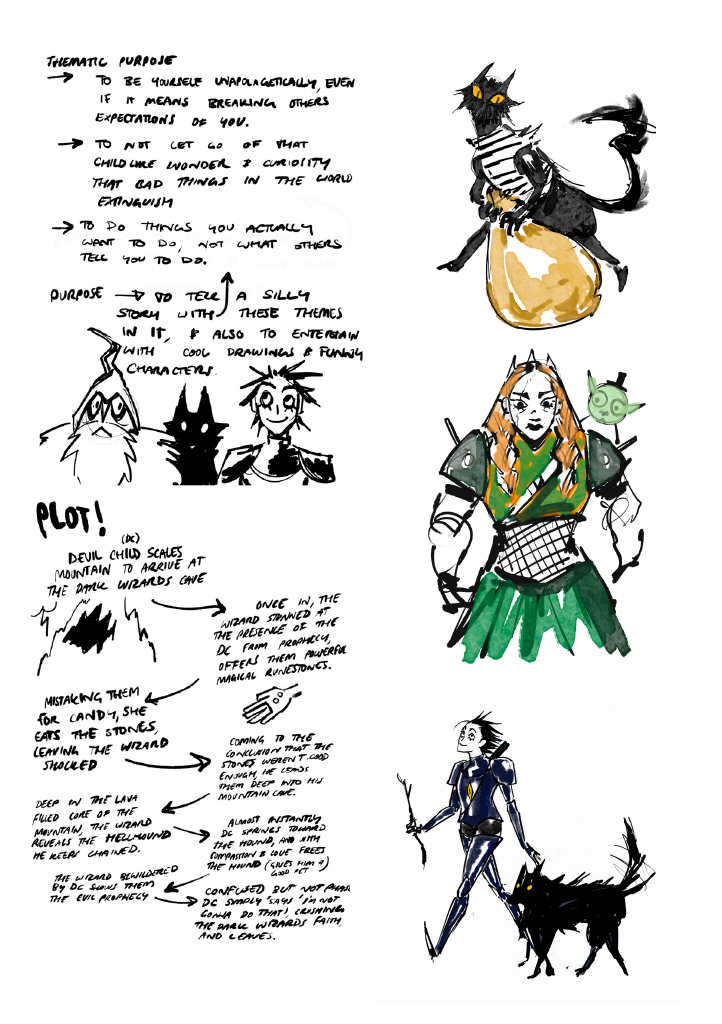 THEMATIC PURPOSE
→ TO BE YOURSELF UNAPOLAGETICALLY, EVEN
IF IT MEANS BREAKING OTHERS
EXPECTATIONS OF YOU.
→ TO NOT LET GO OF THAT
CHILDLIKE WONDER & CURIOSITY
THAT BAD THINGS IN THE WORLD
EXTINGUISH
→ TO DO THINGS YOU ACTUALLY
WANT TO DO, NOT WHAT OTHERS
TELL YOU TO DO.
PURPOSE → TO TELL A SILLY
STORY WITH THESE THEMES
IN IT, & ALSO TO ENTERTAIN
WITH COOL DRAWINGS & FUNNY
CHARACTERS.
PLOT!
(DC)
DEVIL CHILD SCALES
MOUNTAIN TO ARRIVE AT
THE DARK WIZARDS CAVE
ONCE IN, THE
WIZARD STUNNED AT
THE PRESENCE OF THE
DC FROM PROPHECY,
OFFERS THEM POWERFUL
MAGICAL RUNESTONES.
MISTAKING THEM
FOR CANDY, SHE
EATS THE STONES,
LEAVING THE WIZARD
SHOCKED
COMING TO THE
CONCLUSION THAT THE
STONES WEREN'T GOOD
ENOUGH, HE LEADS
THEM DEEP INTO HIS
MOUNTAIN CAVE.
DEEP IN THE LAVA
FILLED CORE OF THE
MOUNTAIN, THE WIZARD
REVEALS THE HELLHOUND
HE KEEPS CHAINED.
ALMOST INSTANTLY
DC SPRINGS TOWARD
THE HOUND, AND WITH
COMPASSION & LOVE FREES
THE HOUND (GIVES HIM A)
GOOD PET
THE WIZARD BEWILDERED
BY DC SHOWS THEM
THE EVIL PROPHECY
CONFUSED BUT NOT
DC SIMPLY SAYS 'I'M NOT
GONNA DO THAT', CRUSHING
THE DARK WIZARDS FAITH,
AND LEAVES.